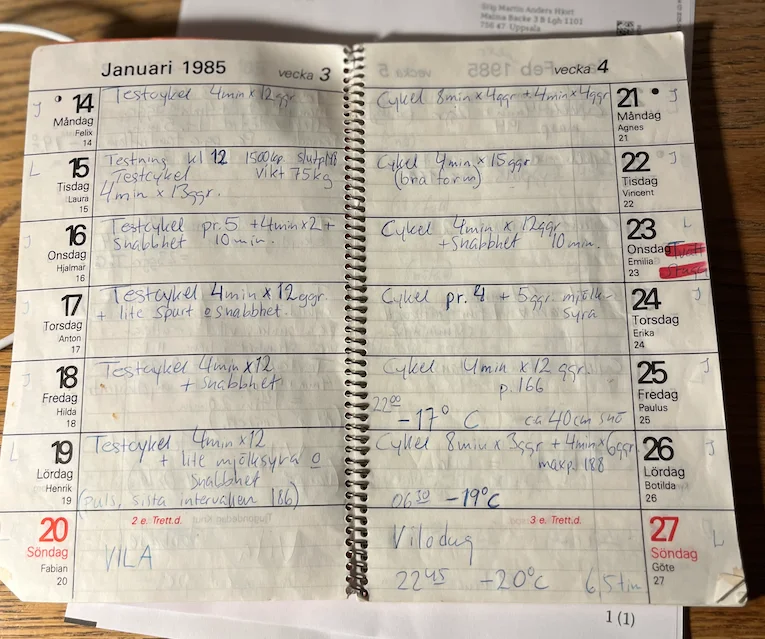 Stig Martin Anders Hårt
Malma Backe 3 B Lgh 1102
756 47 Uppsala
Januari 1985
vecka 3
J
14
Måndag
Felix
14
Testcykel 4min x 12ggr
L
15
Tisdag
Laura
15
Testning kl 12 1500kp slutpuls
Testcykel vikt 75kg
4min x 13ggr.
J
16
Onsdag
Hjalmar
16
Testcykel pr.5 +4min x 2 +
Snabbhet 10min.
J
17
Torsdag
Anton
17
Testcykel 4min x 12ggr
+ lite spurt o snabbhet.
J
18
Fredag
Hilda
18
Testcykel 4min x12
+ snabbhet
L
19
Lördag
Henrik
19
Testcykel 4min x12
+ lite mjölksyra o
Snabbhet
(puls, sista intervallen 186)
L
20
Söndag
Fabian
20
2 e. Trett.d.
VILA
vecka 4
21
Måndag
Agnes
21
J
Cykel 8min x 4ggr + 4min x 4ggr
22
Tisdag
Vincent
22
J
Cykel 4min x 15ggr
(bra form)
23
Onsdag
Emilia
23
L
Cykel 4min x 12ggr
+Snabbhet 10min.
24
Torsdag
Erika
24
J
Cykel pr. 4 + 5ggr mjölk-
syra
25
Fredag
Paulus
25
J
Cykel 4min x 12 ggr
p. 166
22 00
-17° C ca 40cm snö
26
Lördag
Botilda
26
J
Cykel 8min x 3ggr + 4min x 6ggr
maxp. 188
06 30 -19°C
27
Söndag
Göte
27
L
3 e. Trett.d.
Vilodag
22 45 -20°C 6,5 tim
1 (1)